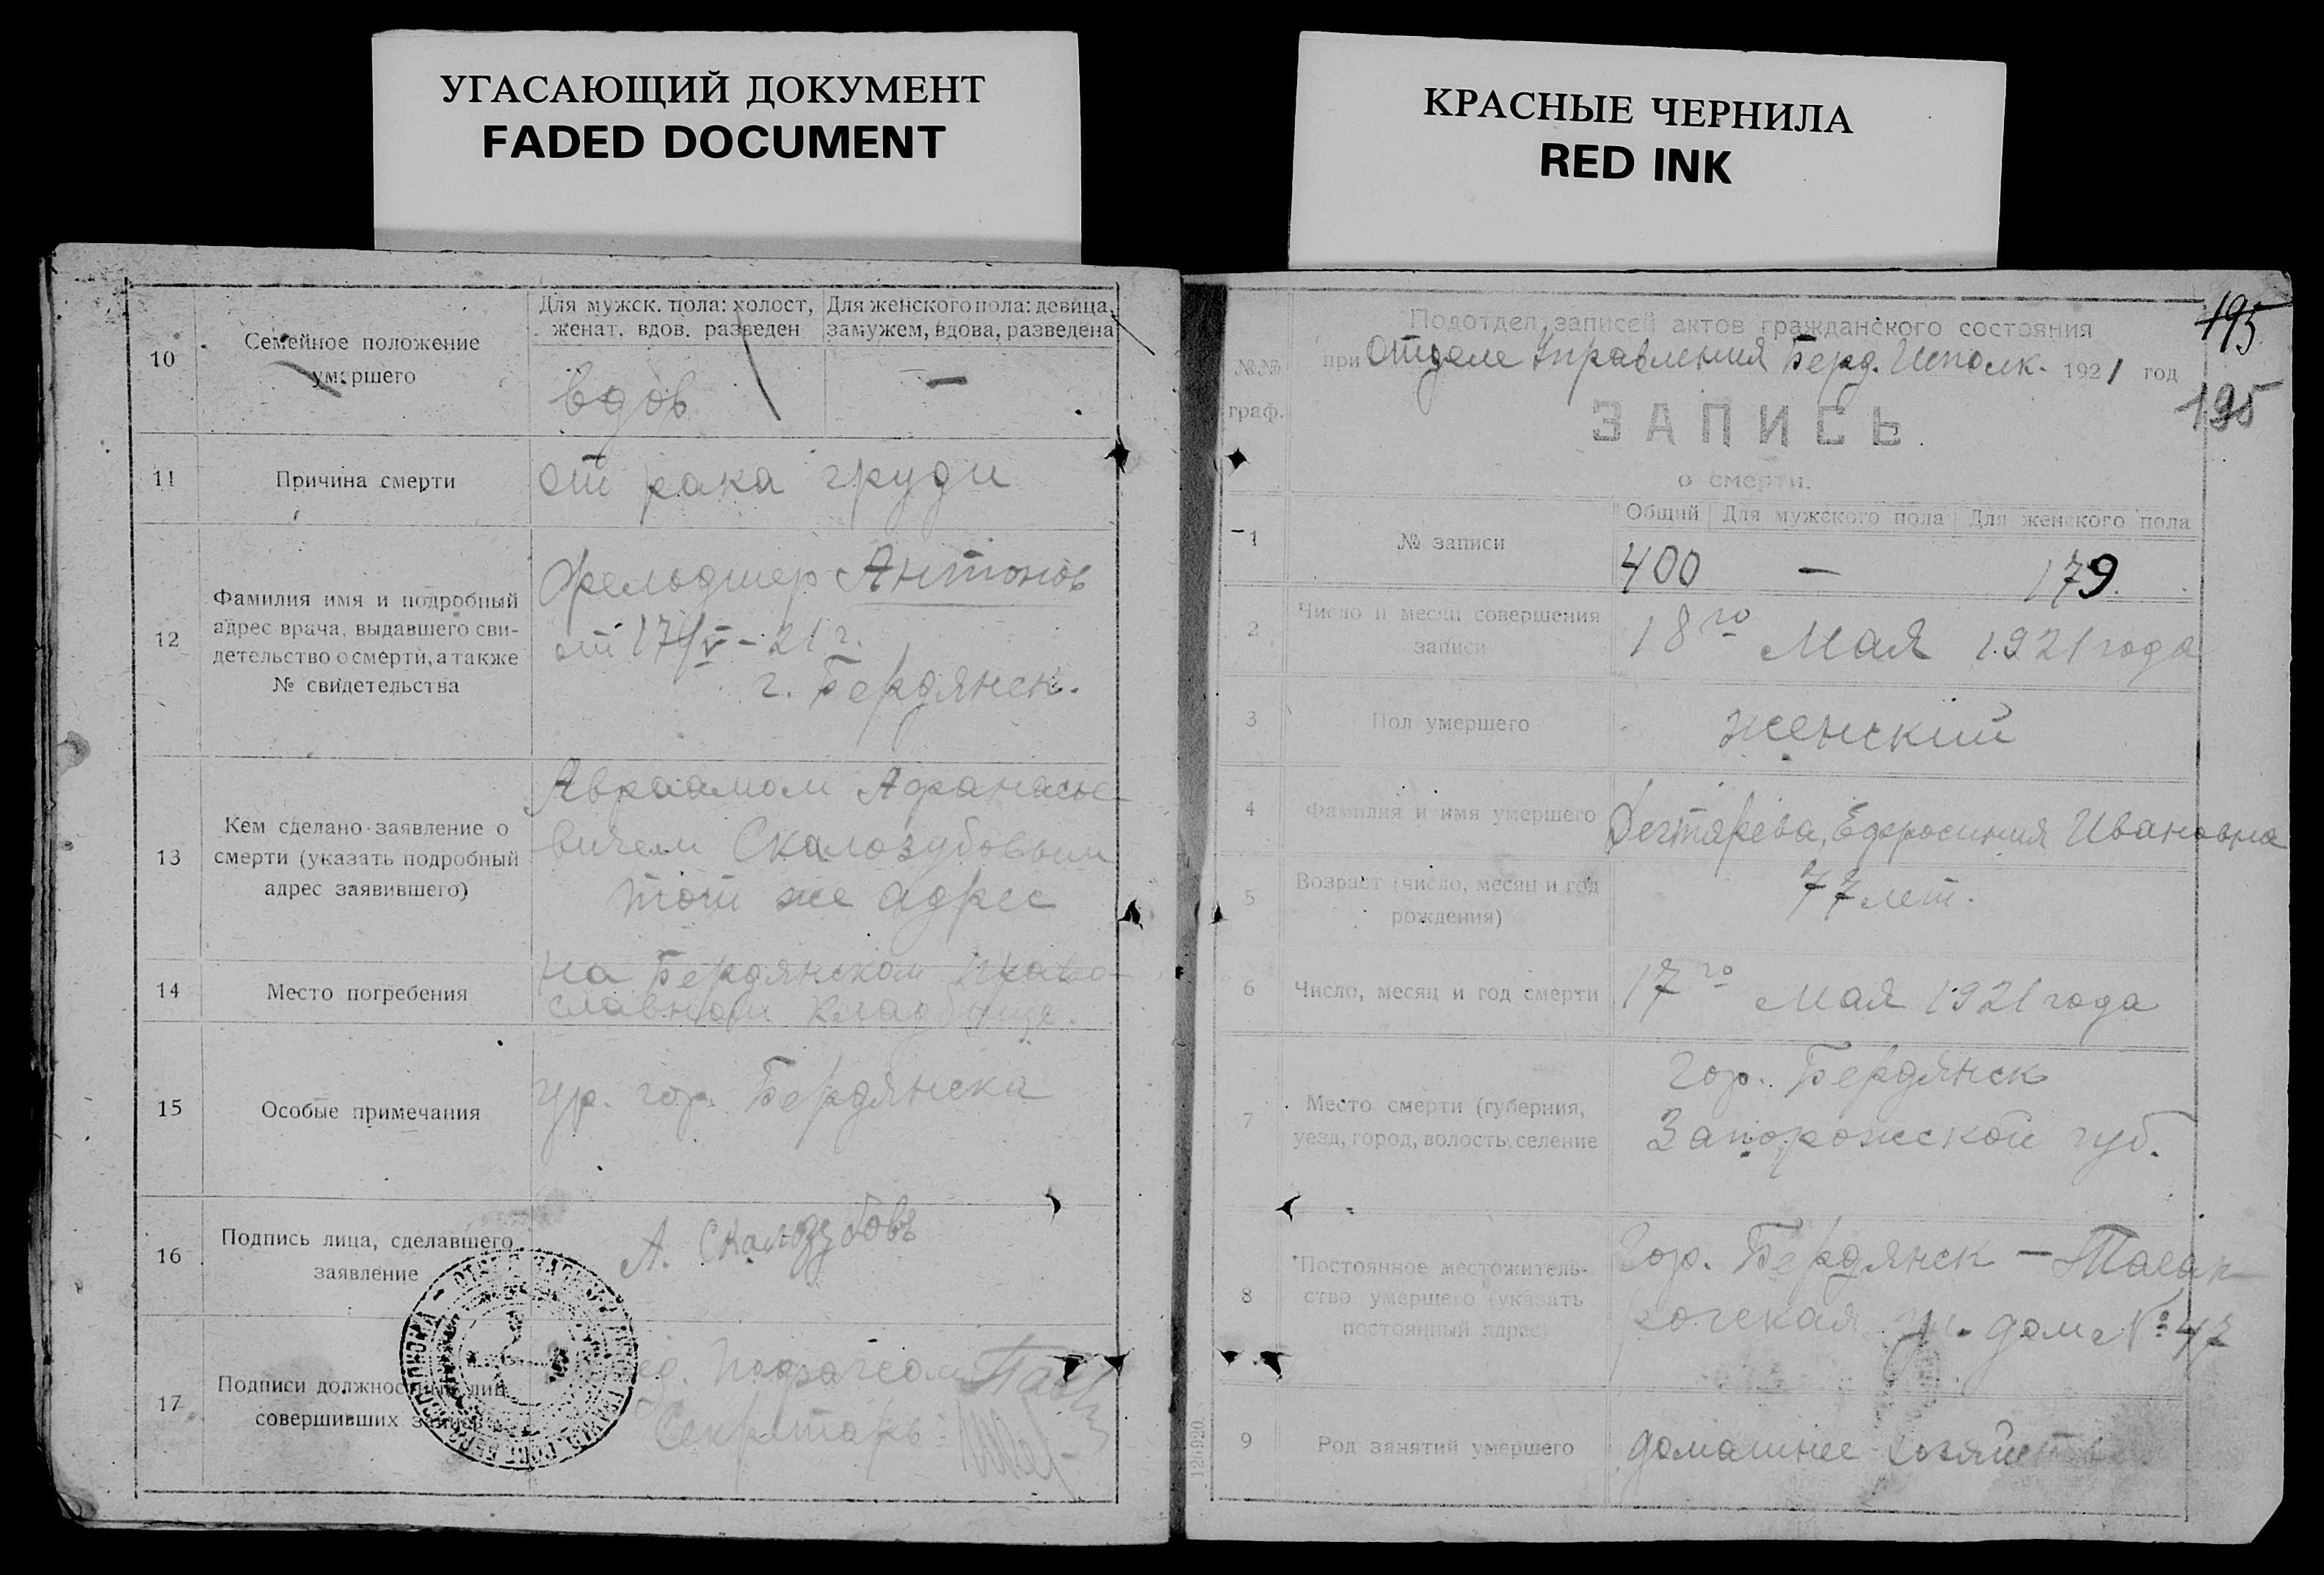 УГАСАЮЩИЙ ДОКУМЕНТ
FADED DOCUMENT
КРАСНЫЕ ЧЕРНИЛА
RED INK
10
Семейное положение
умершего
Для мужск. пола: холост,
женат, вдов. разведен
Для женского пола: девица,
замужем, вдова, разведена
вдов
—
11
Причина смерти
от рака груди
12
Фамилия имя и подробный
адрес врача, выдавшего сви-
детельство о смерти, а также
№ свидетельства
Фельдшер Антонов
от 17/V – 21 г.
г. Бердянск.
13
Кем сделано заявление о
смерти (указать подробный
адрес заявившего)
Авраамом Афанасье-
вичем Скалозубовым
тот же адрес
14
Место погребения
на Бердянском право-
славном кладбище.
15
Особые примечания
ур. гор. Бердянска
16
Подпись лица, сделавшего
заявление
А. Скалозубовъ
17
Подписи должностных лиц
совершивших запись
Секретарь
195
195
№№
граф.
Подотдел записей актов гражданского состояния
при Отделе Управления Берд. Исполк. 1921 год
ЗАПИСЬ
о смерти.
1
№ записи
Общий
Для мужского пола
Для женского пола
400 — 179.
2
Число и месяц совершения
записи
18го Мая 1921 года
3
Пол умершего
женский
4
Фамилия и имя умершего
Дегтярева, Ефросиния Ивановна
5
Возраст (число, месяц и год
рождения)
77 лет.
6
Число, месяц и год смерти
17го мая 1921 года
7
Место смерти (губерния,
уезд, город, волость, селение
гор. Бердянск
Запорожской губ.
8
Постоянное местожитель-
ство умершего (указать
постоянный адрес)
Гор. Бердянск – Таган-
рогская ул. дом № 47
9
Род занятий умершего
домашнее